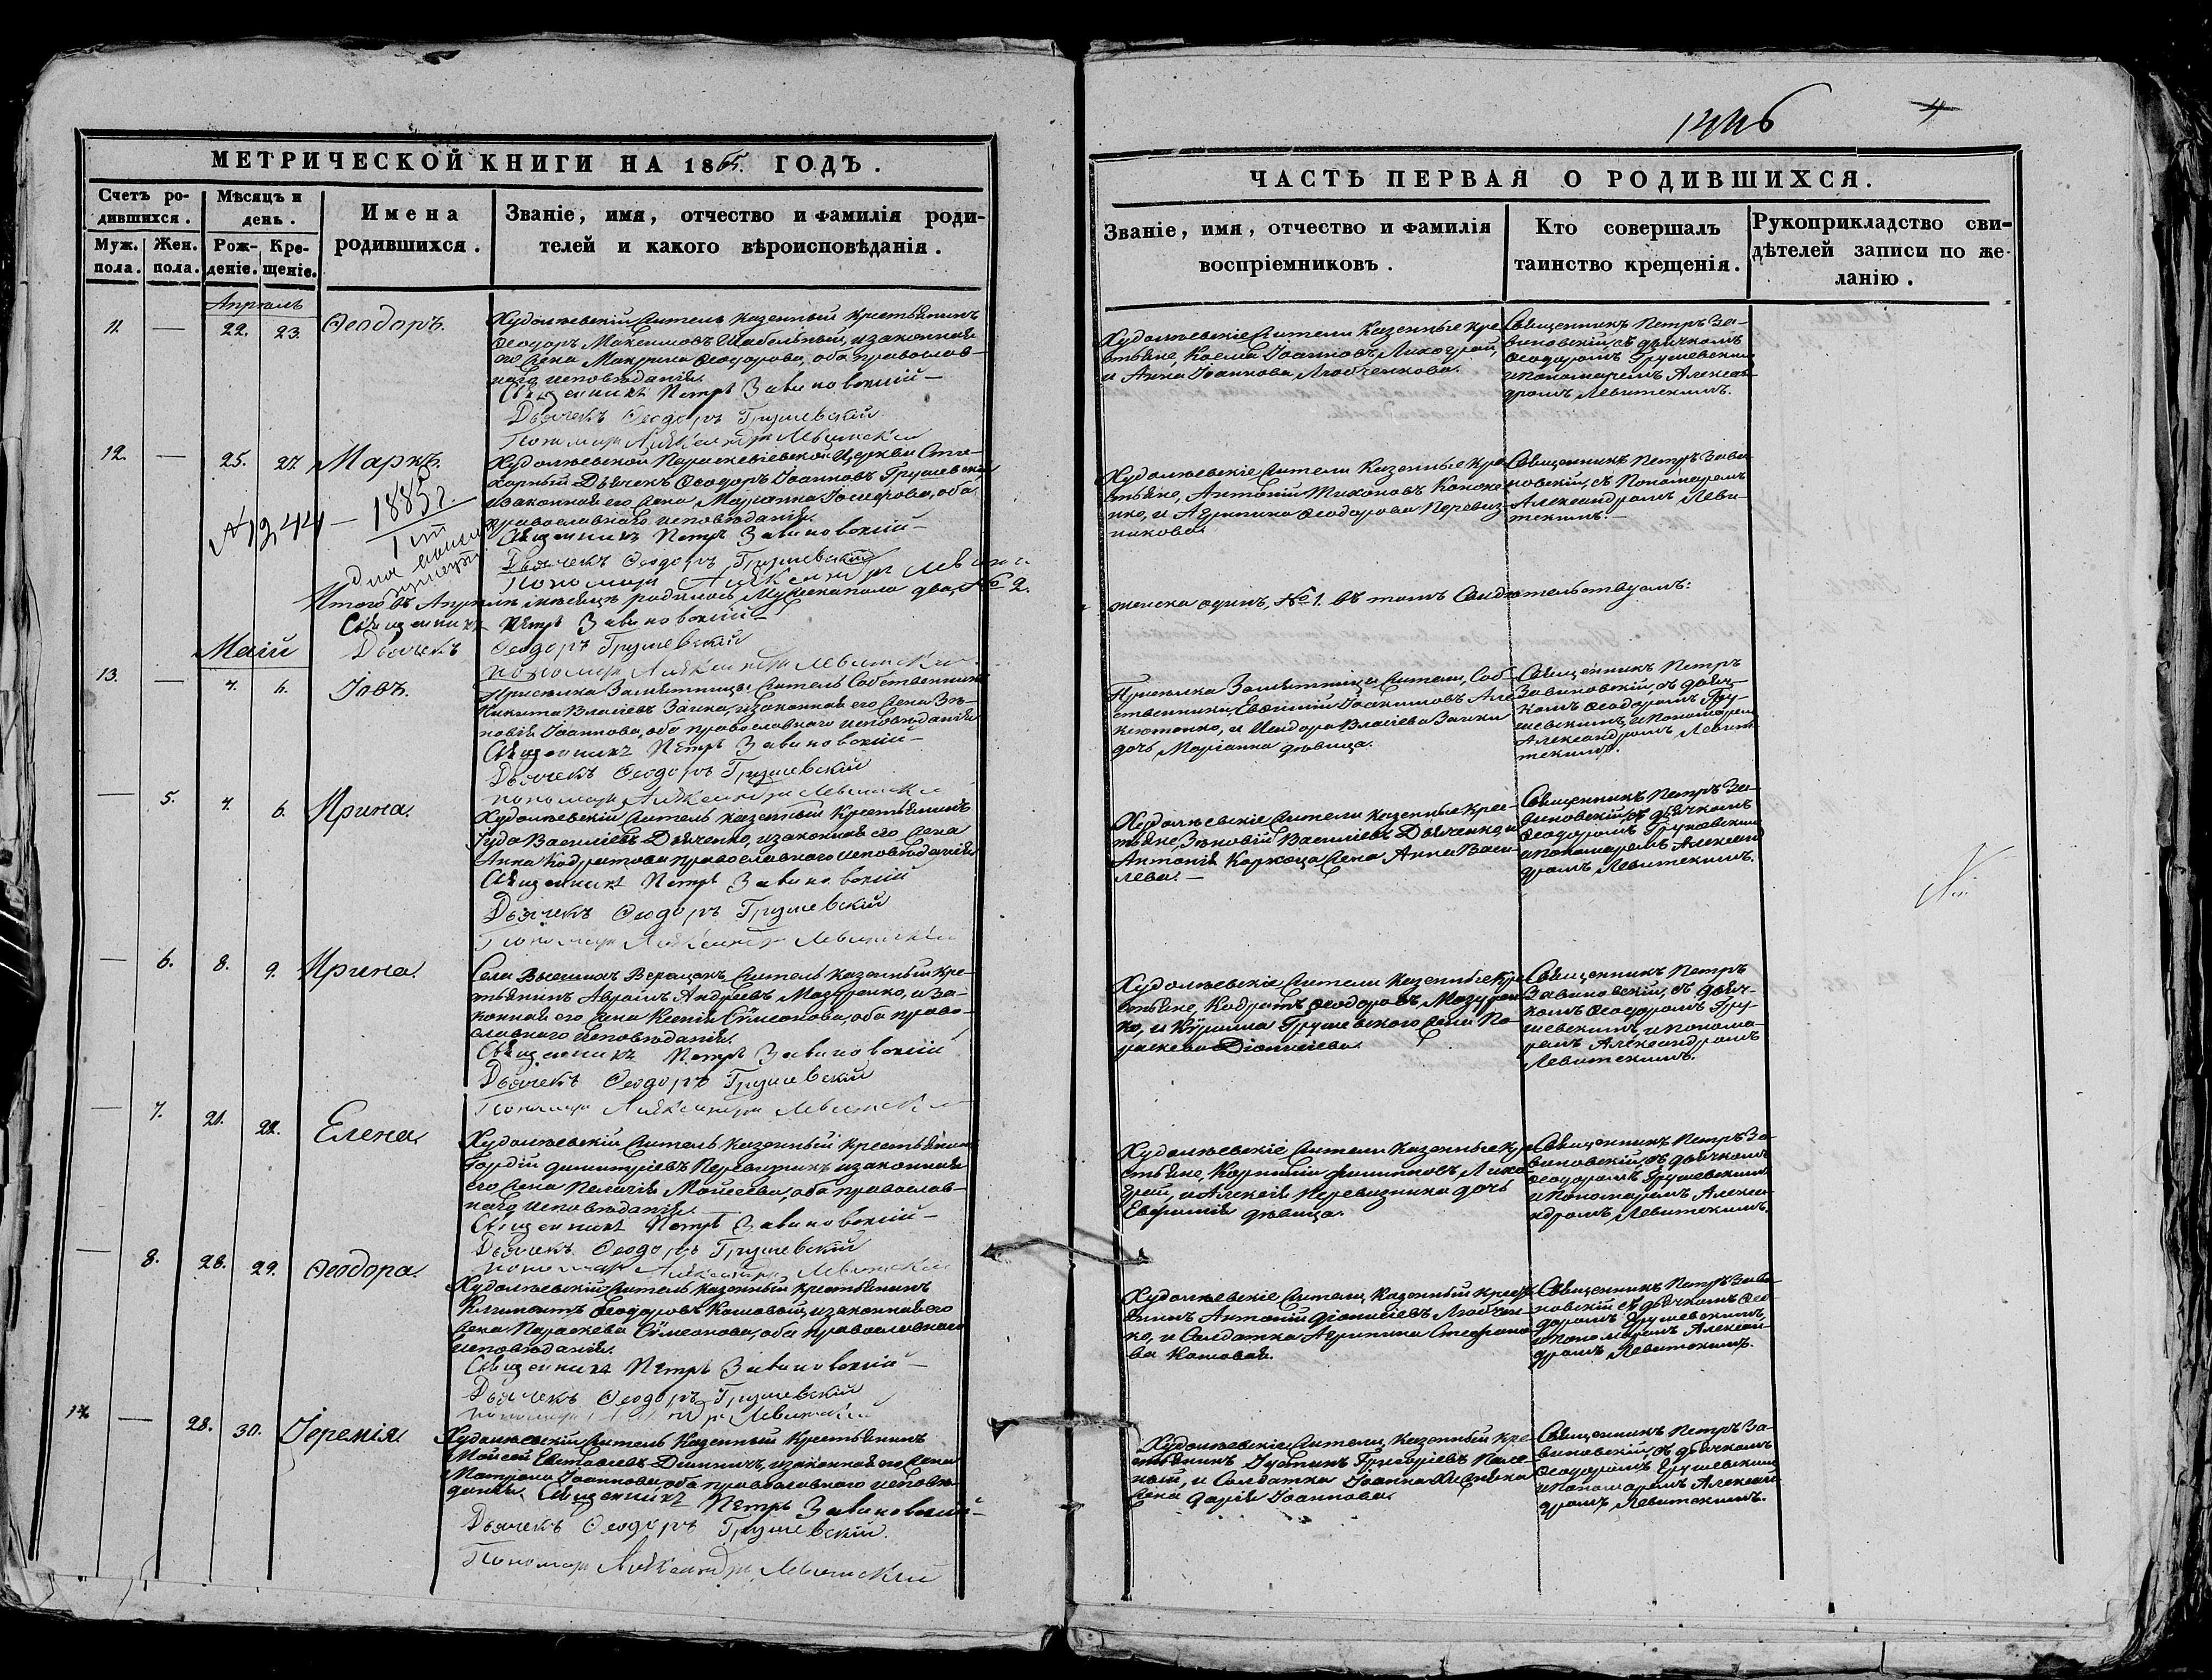 МЕТРИЧЕСКОЙ КНИГИ НА 1865. ГОДЪ.
Счетъ ро-
дившихся.
Мѣсяцъ и
день.
Имена
родившихся.
Званіе, имя, отчество и фамилія роди-
телей и какого вѣроисповѣданія.
Муж.
пола.
Жен.
пола.
Рож-
деніе.
Кре-
щеніе.
Апрѣль
11. — 22. 23. Ѳеодоръ.
Худолѣевскій житель казенный крестьянинъ
Ѳеодоръ Максимовъ Шабельный, и законная
его жена Макрина Ѳеодорова, оба православ-
наго исповѣданія.
Священникъ Петръ Завиновскій
Дьячекъ Ѳеодоръ Грушевскій
Пономарь Александръ Левитскій
12. — 25. 27. Маркъ.
Худолѣевской Параскевіевской Церкви
Дьячекъ Ѳеодоръ Іоанновъ Грушевскій
и законная его жена Маріанна Іосифова, оба
православнаго исповѣданія.
Священникъ Петръ Завиновскій
Дьячекъ Ѳеодоръ Грушевскій
Пономарь Александръ
1885 г.
Итого въ Апрѣлѣ мѣсяцѣ родилось Мужеска пола два, № 2.
Священникъ Петръ Завиновскій
Дьячекъ Ѳеодоръ Грушевскій
Пономарь Александръ Левитскій
Маій
13. — 4. 6. Іовъ.
житель Собственникъ
Никита Власіевъ Зачка, и законная его жена Зѣ-
новія Іоаннова, оба православнаго исповѣданія
Священникъ Петръ Завиновскій
Дьячекъ Ѳеодоръ Грушевскій
Пономарь Александръ Левитскій
— 5. 4. 6. Ирина.
Худолѣевскій житель казенный крестьянинъ
Іуда Василіевъ Дьяченко, и законная его жена
Анна Кодратова православнаго исповѣданія
Священникъ Петръ Завиновскій
Дьячекъ Ѳеодоръ Грушевскій
Пономарь Александръ Левитскій
— 6. 8. 9. Ирина.
Села житель казенный кре-
стьянинъ Авраамъ Андреевъ Мазуренко, и за-
конная его жена Ксенія Сѵмеонова, оба право-
славнаго исповѣданія.
Священникъ Петръ Завиновскій
Дьячекъ Ѳеодоръ Грушевскій
Пономарь Александръ Левитскій
— 7. 21. 22. Елена.
Худолѣевскій житель казенный крестьянинъ
Гордій Димитріевъ Перевизникъ и законная
его жена Пелагія Моисеева, оба православ-
наго исповѣданія.
Священникъ Петръ Завиновскій
Дьячекъ Ѳеодоръ Грушевскій
Пономарь Александръ Левитскій
— 8. 28. 29. Ѳеодора.
Худолѣевскій житель казенный крестьянинъ
Климентъ Ѳеодоровъ Кошовый, и законная его
жена Параскева Сѵмеонова, оба православнаго
исповѣданія.
Священникъ Петръ Завиновскій
Дьячекъ Ѳеодоръ Грушевскій
Пономарь Левитскій
14. — 28. 30. Іеремія.
Худолѣевскій житель казенный крестьянинъ
Мойсей и законная его жена
Матрона Іоаннова, оба православнаго исповѣ-
данія. Священникъ Петръ Завиновскій
Дьячекъ Ѳеодоръ Грушевскій.
Пономарь Александръ Левитскій
4
ЧАСТЬ ПЕРВАЯ О РОДИВШИХСЯ.
Званіе, имя, отчество и фамилія
воспріемниковъ.
Кто совершалъ
таинство крещенія.
Рукоприкладство сви-
дѣтелей записи по же-
ланію.
Худолѣевскіе жители казенные кре-
стьяне, Косма Іоанновъ Лихограй,
и Анна Іоаннова Любченкова.
Священникъ Петръ За-
виновскій, съ дьячкомъ
Ѳеодоромъ Грушевскимъ
и пономаремъ Алексан-
дромъ Левитскимъ.
Худолѣевскіе жители казенные кре-
стьяне, Антоній Тихоновъ Кононе-
нко, и Агрипина Ѳеодорова Перевиз-
никова.
Священникъ Петръ Зави-
новскій, съ Пономаремъ
Александромъ Леви-
тскимъ.
женска одинъ, № 1. въ томъ Свидѣтельствуемъ:
жители, Соб-
ственники, Евѳимій Іоакимовъ Але-
ксютенко, и Исидора Власіева Зачки
дочь Маріанна дѣвица.
Священникъ Петръ
Завиновскій, съ дьяч-
комъ Ѳеодоромъ Гру-
шевскимъ, и пономаремъ
Александромъ Левит-
скимъ.
Худолѣевскіе жители казенные крес-
тьяне, Зѣновій Василіевъ Дьяченко, и
Антонія жена Анна Васи-
лева.
Священникъ Петръ За-
виновскій, съ дьячкомъ
Ѳеодоромъ Грушевскимъ
и пономаремъ Алексан-
дромъ Левитскимъ.
Худолѣевскіе жители казенные кре-
стьяне, Кодратъ Ѳеодоровъ Мазурен-
ко, и Грушевского жена Па-
раскева Діонисіева.
Священникъ Петръ
Завиновскій, съ дьяч-
комъ Ѳеодоромъ Гру-
шевскимъ, и понома-
ремъ Александромъ
Левитскимъ.
Худолѣевскіе жители казенные кре-
стьяне, Корнилій Филиповъ Лихо-
грай, и Алексія Перевизника дочь
Евфимія дѣвица.
Священникъ Петръ За-
виновскій, съ дьячкомъ
Ѳеодоромъ Грушевскимъ
и пономаремъ Алекса-
ндромъ Левитскимъ.
Худолѣевскіе жители, казенный кресть-
янинъ Антоній Діонисіевъ Любчен-
ко, и Салдатка Агрипина Стефано-
ва Кошовая.
Священникъ Петръ Зави-
новскій съ дьячкомъ Ѳео-
доромъ Грушевскимъ,
и пономаремъ Алексан-
дромъ Левитскимъ.
Худолѣевскіе жители, казенный кре-
стьянинъ Іустинъ Григоріевъ
и Салдатка Іоанна
жена Дарія Іоаннова.
Священникъ Петръ За-
виновскій, съ дьячкомъ
Ѳеодоромъ Грушевскимъ
и пономаремъ Алексан-
дромъ Левитскимъ.